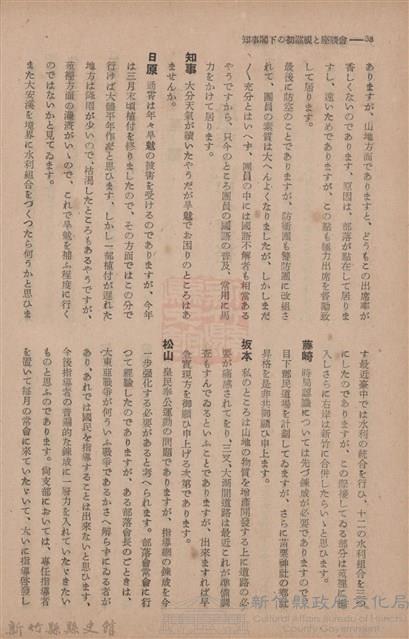 知事閣下の初巡視と座談會――38
ありますが、山地方面でありますと、どうもこの出席率が
香しくないのであります、原因は、部落が點在して居りま
すし、遠いためでありますが、この點も極力出席を督勵致
して居ります。
最後に防空のことでありますが、防衞團も警防團に改組さ
れて、團員の素質は大へんよくなりましたが、しかしまだ
〱充分とはいへず、團員の中には國語不解者も相當ある
やうですから、只今のところ團員の國語の普及、常用に馬
力をかけて居ります。
知事 大分天氣が續いたやうだが旱魃でお困りのところはあ
りませんか。
日原 通霄は年々旱魃の被害を受けるのでありますが、今年
は三月末頃植付を終りましたので、その方面ではこの分で
行けば大體平年作だと思ひます、しかし一部植付が遲れた
地方は降雨が少いので、枯渇したところもあるやうですが、
苑裡方面の灌漑がいゝので、これで旱魃を補ふ程度に行く
のではないかと見てゐます。
また大安溪を境界に水利組合をつくつたら何うかと思ひま
す最近臺中では水利の統合を行ひ、十二の水利組合を三つ
にしたのでありますが、この際接してゐる部分は苑裡に編
入しさらに右岸は新竹に合併したらいゝと思ひます。
藤崎 時局認識については先づ錬成が必要でありますので、
目下郡民道場を計劃してゐますが、さらに苗栗神社の鄕社
昇格を是非共御願ひ申上ます。
坂本 私のところは山地の物資を增產開發する上に道路の必
要が痛感されてをり、三叉、大湖間道路は最近これが準備調
査もすんでゐるといふことでありますが、出來ますれば早
急實現方を御願ひ申上げる次第であります。
松山 皇民奉公運動の問題でありますが、指導網の錬成を今
一步強化する必要があると考へられます。部落會常會に行
つて經驗したのでありますが、ある部落會長のごときは、
大東亞戰爭が何ういふ戰爭であるかさへ解らずにゐる者が
あり、あれでは國民を指導することは出來ないと思ひます、
今後指導者の普遍的な錬成に一層力を入れていたゞきたい
ものと思ふのであります。尙支部においては、專任指導者
を置いて每月の常會に來ていたゞいて、大いに指導啓發し
新竹縣政府文化局
Cultural Affairs Bureau of Hsinchu County
新竹縣縣史館